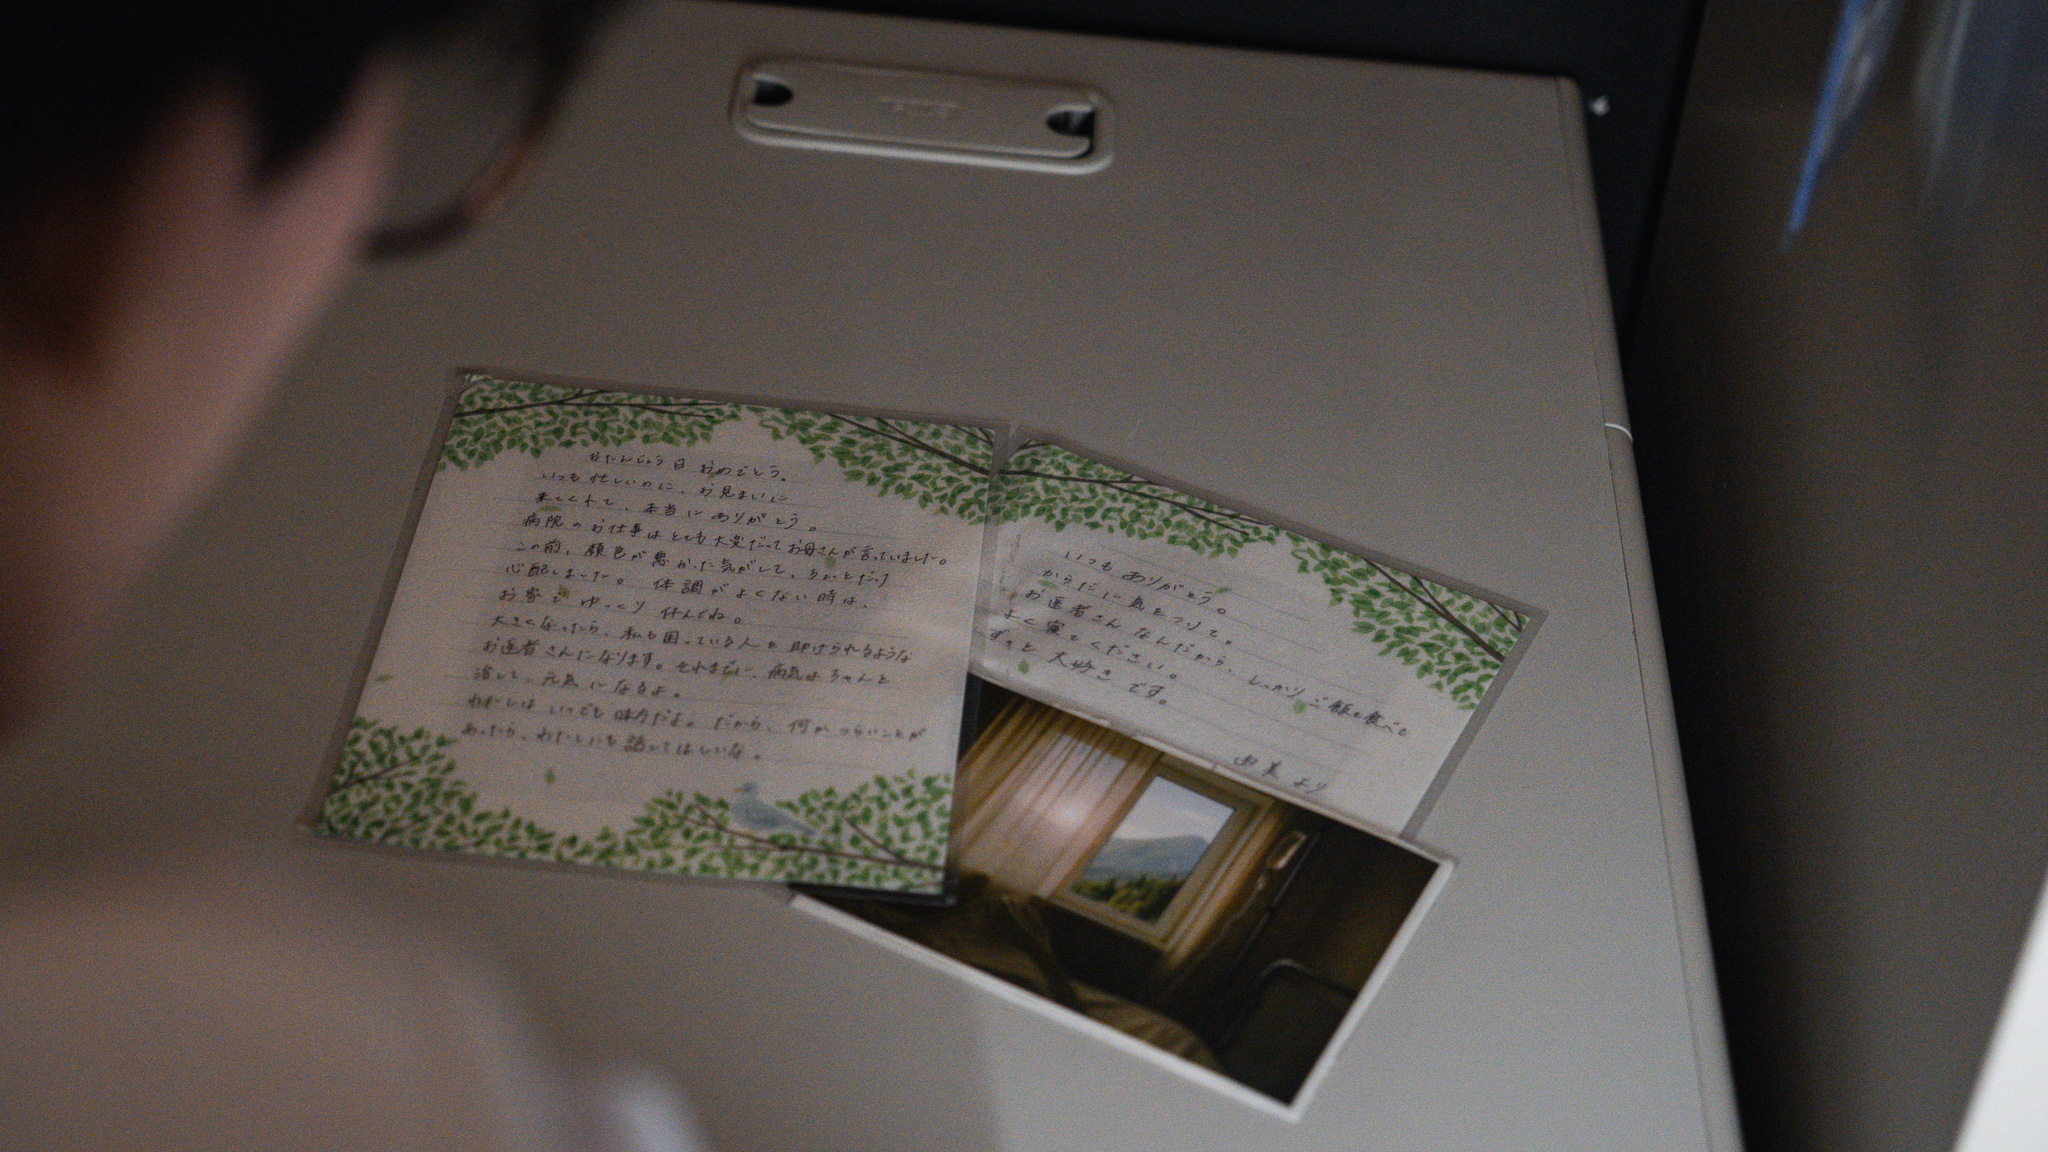 おたんじょう日 おめでとう。
いつも忙しいのに、お見まいに
来てくれて、本当にありがとう。
病院のお仕事はとても大変だってお母さんが言っていました。
この前、顔色が悪かった気がして、ちょっとだけ
心配しました。体調がよくない時は、
お家でゆっくり休んでね。
大きくなったら、私も困っている人を助けられるような
お医者さんになります。それまでに、病気はちゃんと
治して、元気になるよ。
わたしはいつでも味方だよ。だから、何かつらいことが
あったら、わたしにも話してほしいな。
いつもありがとう。
からだに気をつけて。
お医者さんなんだから、しっかりご飯を食べて
よく寝てください。
ずっと大好きです。
由美より